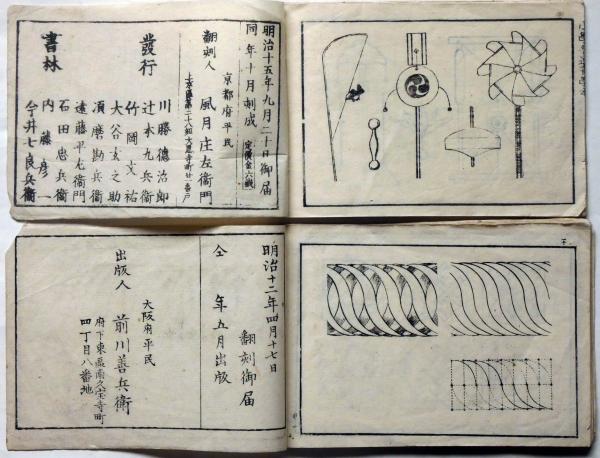 明治十五年九月二十日御届
同年十月刻成
定價金六錢
京都府平民
翻刻人 風月庄左衞門
發行
書林
川勝德治郎
辻本九兵衞
竹岡文祐
大谷玄之助
須磨勘兵衞
遠藤平左衞門
石田忠兵衞
内藤彦一
今井七良兵衞
明治十二年四月十七日
翻刻御届
仝年五月出版
大阪府平民
出版人 前川善兵衞
府下東區南久宝寺町
四丁目八番地